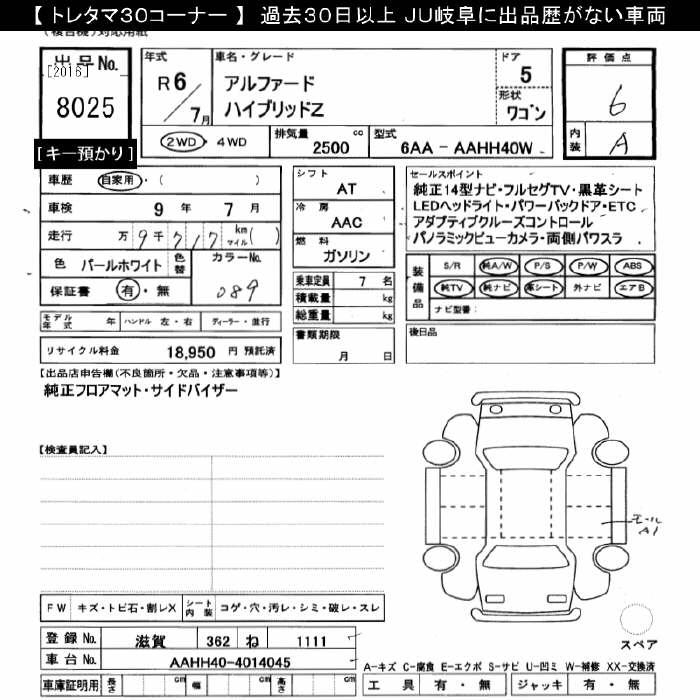 【 トレタマ30コーナー 】 過去30日以上 JU岐阜に出品歴がない車両
出品No.
[2016]
8025
[キー預かり]
年式
R6/7月
車名・グレード
アルファード
ハイブリッドZ
ドア
5
形状
ワゴン
評価点
6
内装
A
2WD・4WD
排気量 2500 cc
型式 6AA - AAHH40W
車歴 自家用・( )
車検 9年 7月
走行 万9千717 km マイル( )
色 パールホワイト 色替 カラーNo.
089
保証書 有・無
シフト
AT
冷房
AAC
燃料
ガソリン
乗車定員 7 名
積載量 kg
総重量 kg
書類期限
月 日
セールスポイント
純正14型ナビ・フルセグTV・黒革シート
LEDヘッドライト・パワーバックドア・ETC
アダプティブクルーズコントロール
パノラミックビューカメラ・両側パワスラ
装備品
S/R 純A/W P/S P/W ABS
純TV 純ナビ 革シート 外ナビ エアB
ナビ型番:
モデル年式 年 ハンドル 左・右 ディーラー・並行
後日品
リサイクル料金 18,950 円 預託済
【出品店申告欄(不良箇所・欠品・注意事項等)】
純正フロアマット・サイドバイザー
【検査員記入】
モール
A1
FW キズ・トビ石・割レX シート内装 コゲ・穴・汚レ・シミ・破レ・スレ
スペア
登録No. 滋賀 362 ね 1111
車台No. AAHH40-4014045
A-キズ C-腐食 E-エクボ S-サビ U-凹ミ W-補修 XX-交換済
車庫証明用 長さ cm 幅 cm 高さ cm
工具 有・無 ジャッキ 有・無